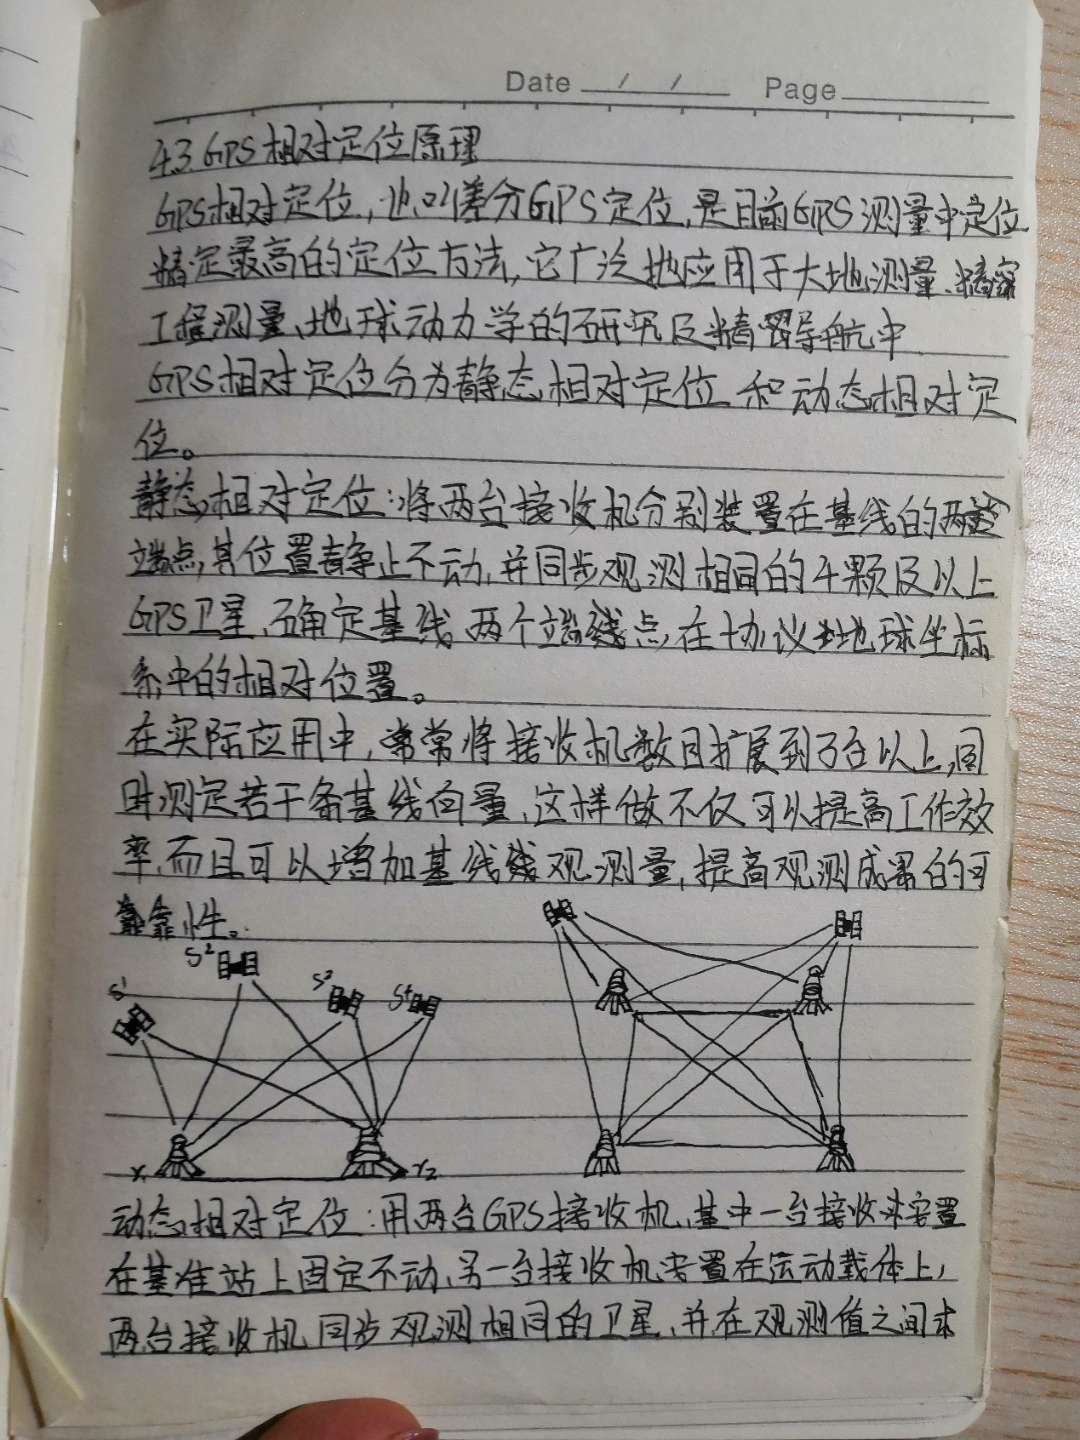 Date / / Page
4.3 GPS相对定位原理
GPS相对定位,也叫差分GPS定位,是目前GPS测量中定位
精定最高的定位方法,它广泛地应用于大地测量、精密
工程测量、地球动力学的研究及精密导航中
GPS相对定位分为静态相对定位和动态相对定
位。
静态相对定位:将两台接收机分别装置在基线的两
端点,其位置静止不动,并同步观测相同的4颗及以上
GPS卫星,确定基线两个端点在协议地球坐标
系中的相对位置。
在实际应用中,常常将接收机数目扩展到3台以上,同
时测定若干条基线向量,这样做不仅可以提高工作效
率,而且可以增加基线观测量,提高观测成果的可
靠性。
S¹ S² S³ S⁴
r₁ r₂
动态相对定位:用两台GPS接收机,其中一台接收机安置
在基准站上固定不动,另一台接收机安置在运动载体上,
两台接收机同步观测相同的卫星,并在观测值之间求